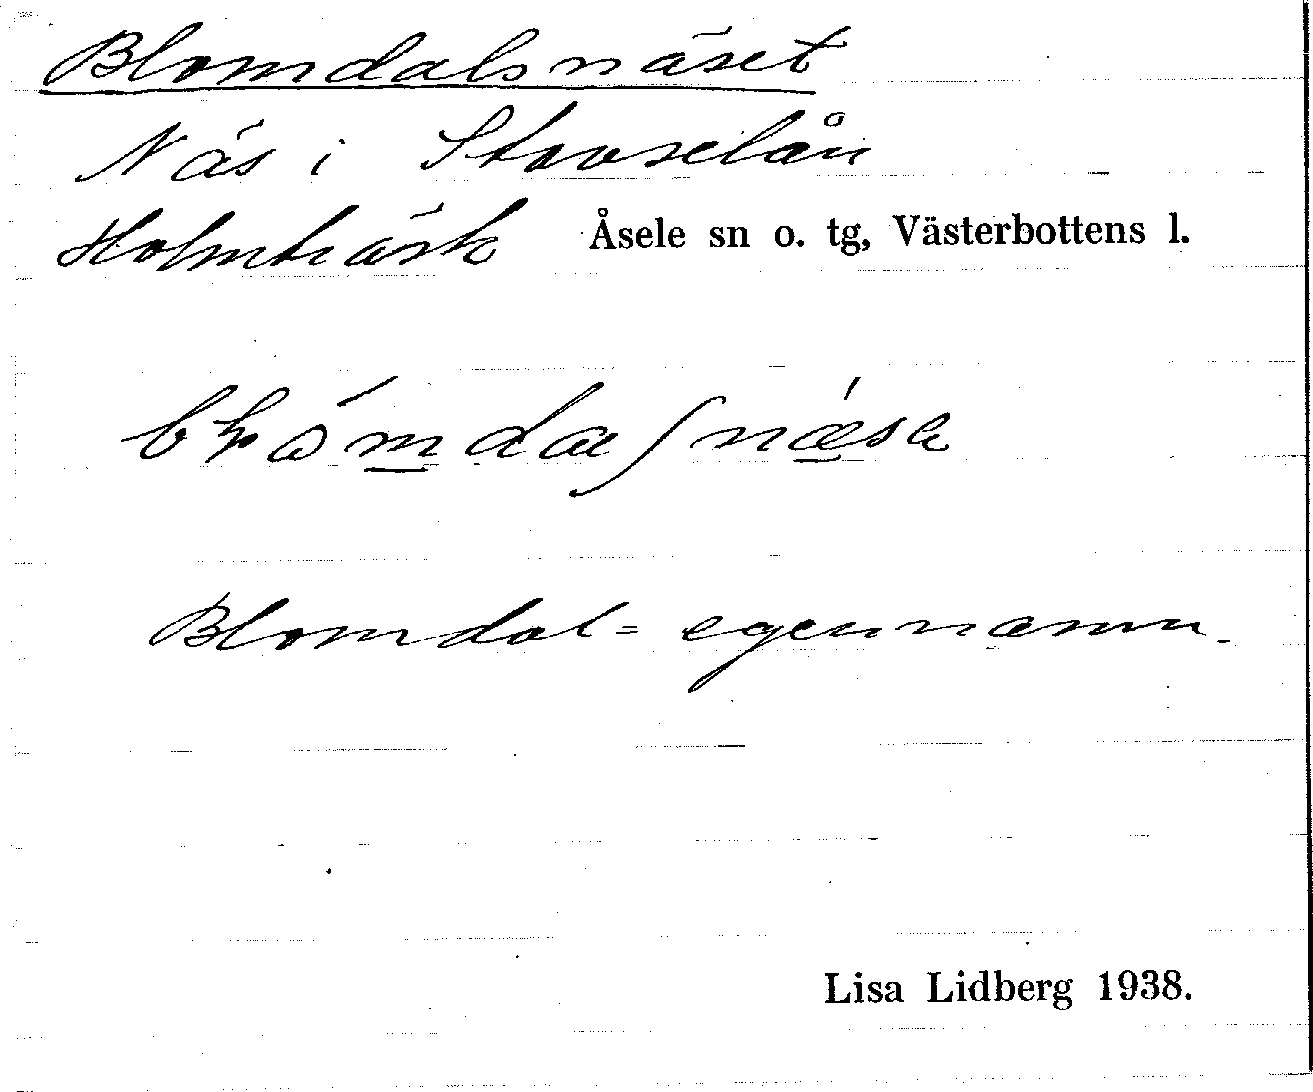 Blomdalsnäset
Näs i Storselån
Holmträsk Åsele sn o. tg, Västerbottens l.
Blomdal = egennamn.
Lisa Lidberg 1938.